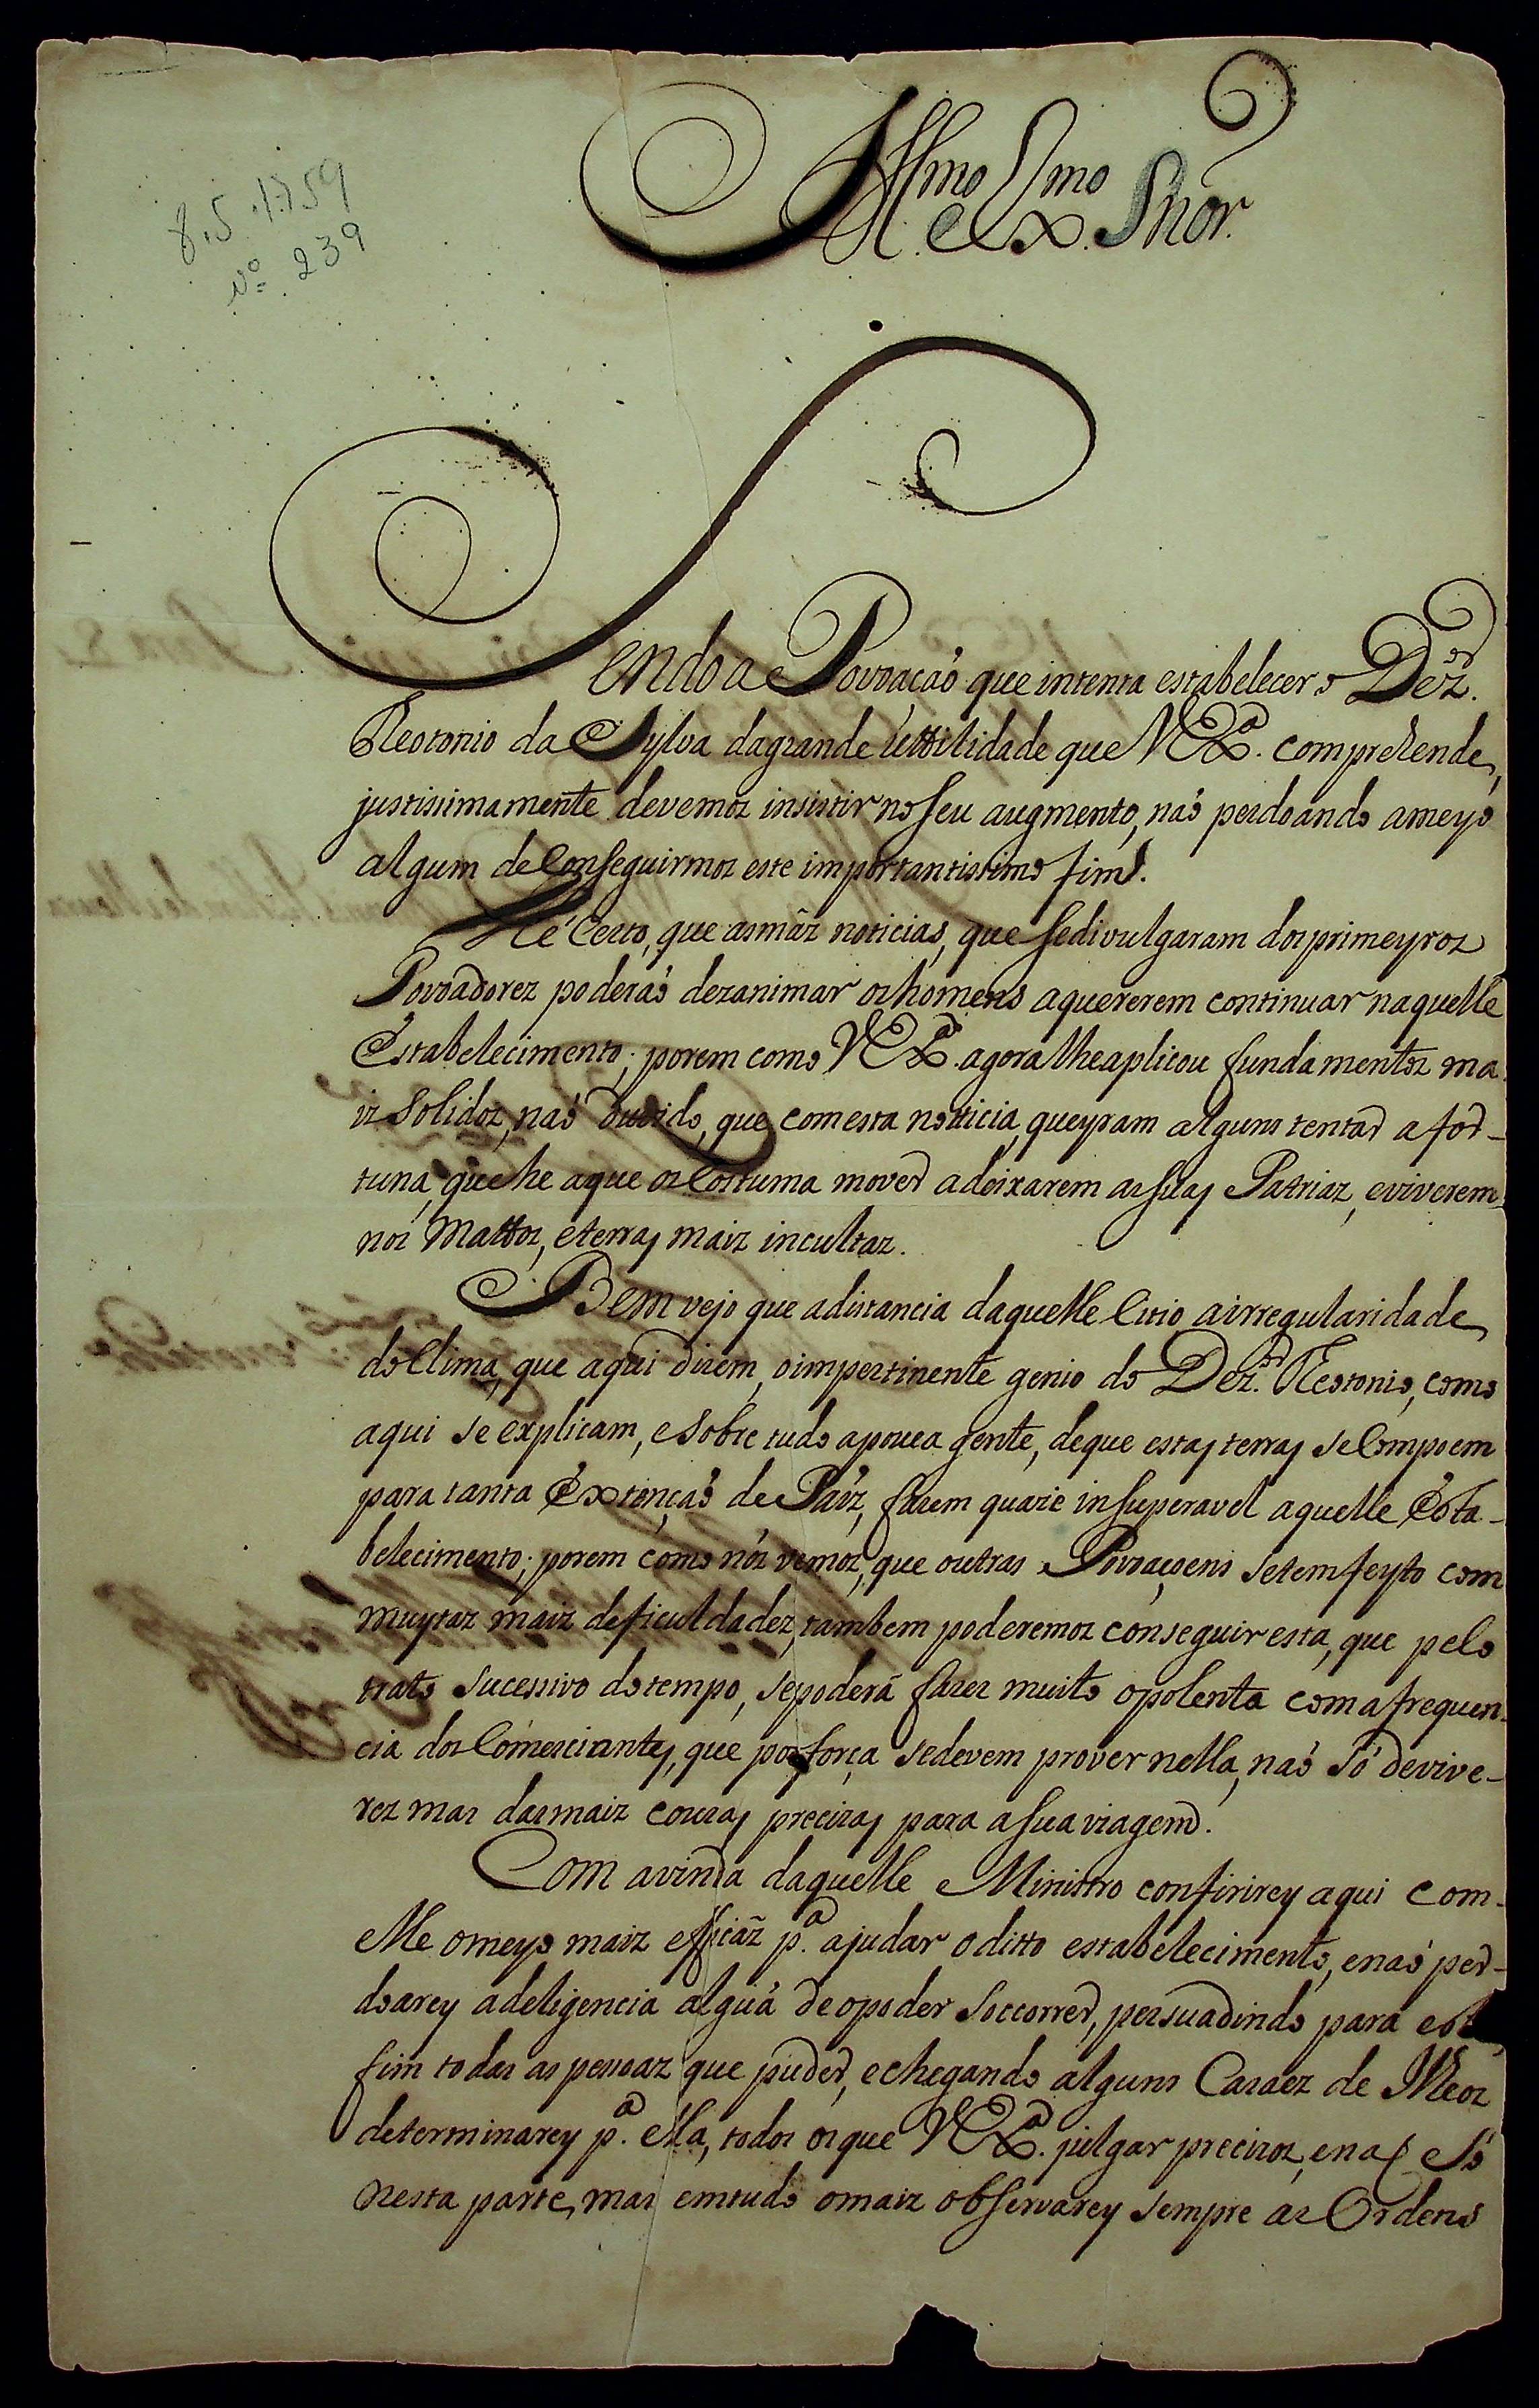 8.5.1759
Nº. 239
Illmo. e Exmo. Snõr.
Sendo a Povoaçaõ que intenta estabelecer o Dez.or
Theotonio da Sylva da grande uttilidade que V Ex.ª comprehende,
justissimamente devemos insistir no seu augmento, naõ perdoando a meyo
algum de Conseguirmos este importantissimo fim.
Hé Certo, que as mâs noticias, que se divulgaram dos primeyros
Povoadores poderaõ dezanimar os homens a quererem continuar naquelle
Estabelecimento; porem como V Ex.ª agora lhe aplicou fundamentos ma
is solidos, naõ duvido, que com esta notticia, queyram alguns tentar a for-
tuna, que he a que os Costuma mover a deixarem as suas Patrias, e viverem
nos Mattos, e terras mais incultas.
Bem vejo que a distancia daquelle Citio a irregularidade
do Clima, que aqui dizem, o impertinente genio do Dez.or Theotonio, como
aqui se explicam, e sobre tudo a pouca gente, de que estas terras se Compoem
para tanta Extençaõ de Paiz, fazem quazie insuperavel aquelle Esta-
belecimento; porem como nós vemos, que outras Povoaçoens se tem feyto com
muytas mais deficuldades, tambem poderemos conseguir esta, que pelo
trato sucessivo do tempo, se poderá fazer muito opolenta com a frequen-
cia dos Comerciantes, que por força se devem prover nella, naõ só de vive-
res mas das mais couzas precizas para a sua viagem.
Com a vinda daquelle Ministro confirirey aqui com
elle o meyo mais efficáz p.ª ajudar o ditto estabelecimento, e naõ per-
doarey a deligencia alguã de o poder soccorrer, persuadindo para este
fim todas as pessoas que puder, e chegando alguns Cazaes de Ilheos
determinarey p.ª ella, todos os que V Ex.ª julgar precizos, e naõ só
nesta parte, mas em tudo o mais observarey sempre as Ordens